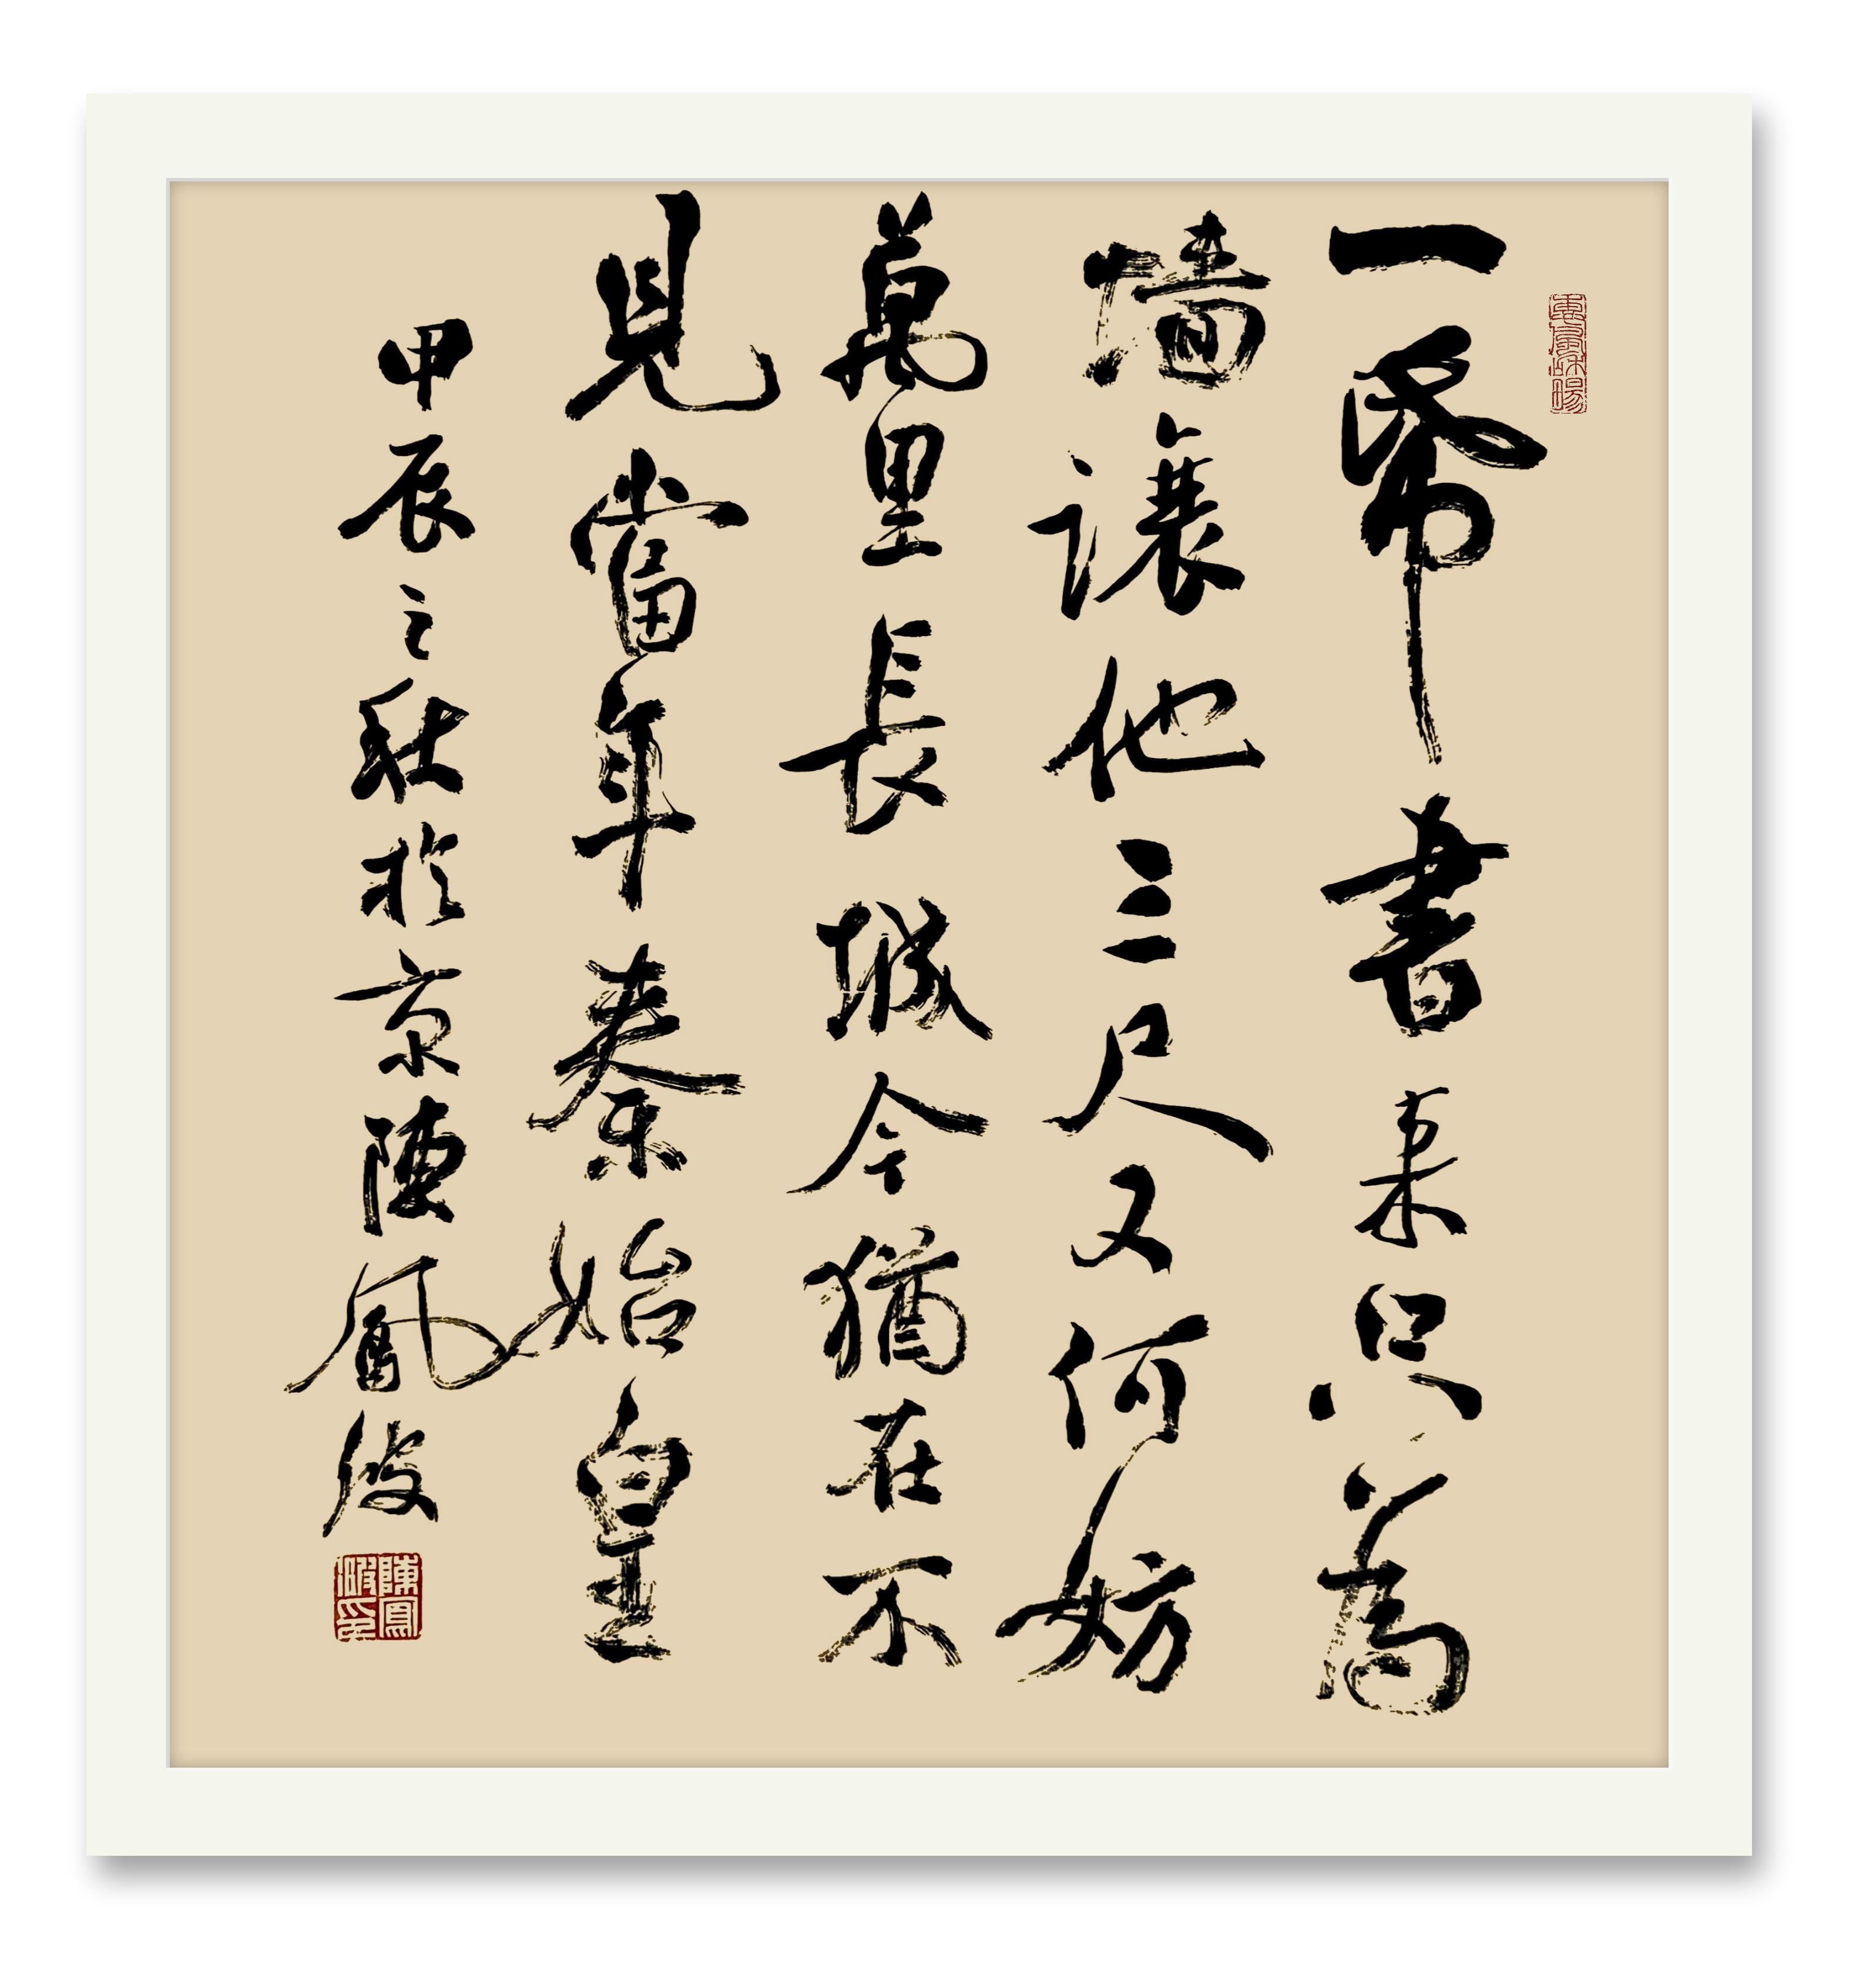 一帋書來只為
墙讓他三尺又何妨
萬里長城今猶在不
見當年秦始皇
甲辰之秋於京陳鳳
陳鳳印